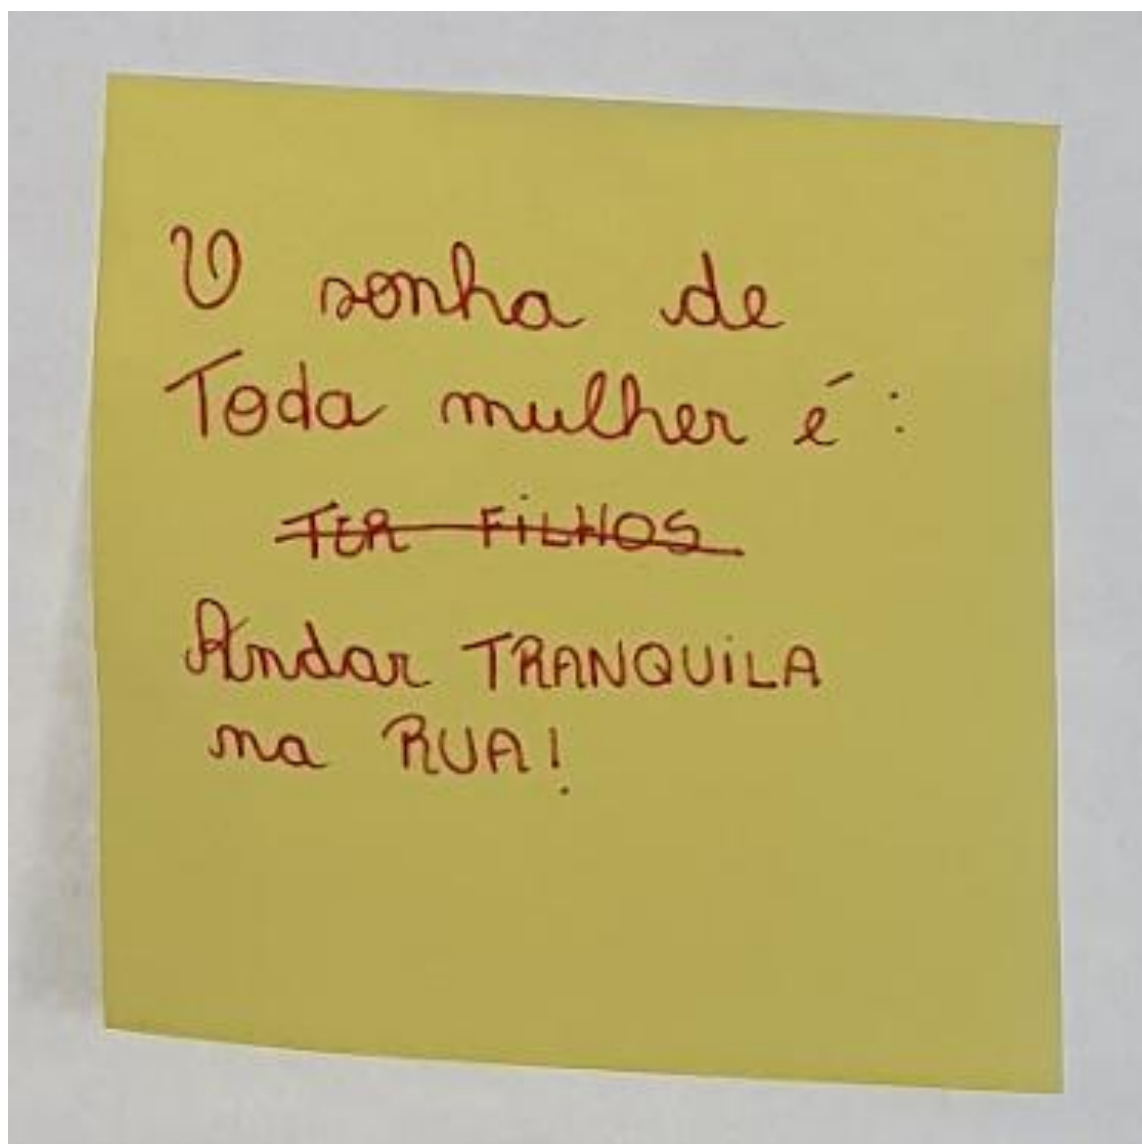 O sonho de
Toda mulher é:
TER FILHOS
Andar TRANQUILA
na RUA!